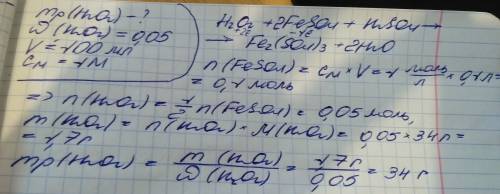 mр(H₂O₂) - ?
ω(H₂O₂) = 0,05
V = 100 мл
Cм = 1M
H₂O₂ + 2FeSO₄ + H₂SO₄ →
→ Fe₂(SO₄)₃ + 2H₂O
n(FeSO₄) = Cм × V = 1 моль/л × 0,1л =
= 0,1 моль
=> n(H₂O₂) = 1/2 n(FeSO₄) = 0,05 моль,
m(H₂O₂) = n(H₂O₂) × M(H₂O₂) = 0,05 × 34г =
= 1,7г
mр(H₂O₂) = m(H₂O₂)/ω(H₂O₂) = 1,7г/0,05 = 34 г